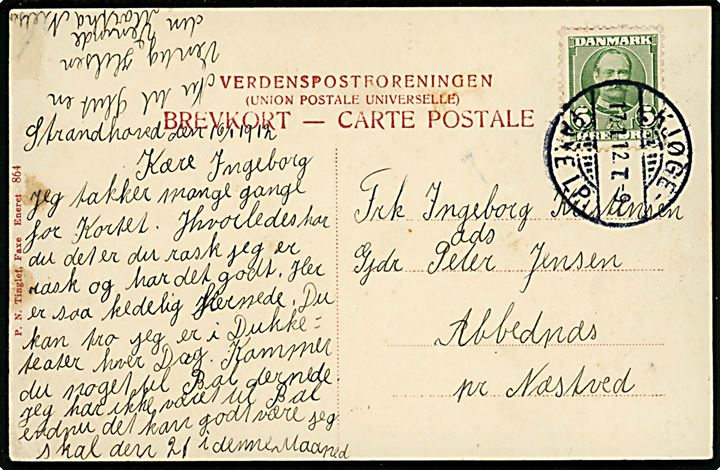 VERDENSPOSTFORENINGEN
(UNION POSTALE UNIVERSELLE)
BREVKORT — CARTE POSTALE
DANMARK
5 5
ØRE ØRE
KJØGE-
17.1.12.T.-9
P. N. Tinglef, Faxe Eneret 864
Strandhoved den 16/1 1912
Kære Ingeborg
jeg takker mange gange
for Kortet. Hvorledes har
du det er du rask jeg er
rask og har det godt. Her
er saa kedelig Hernede. Du
kan tro jeg er i Dukke=
teater hver Dag. Kommer
du noget til Bal dernede.
jeg har ikke været til Bal
endnu det kan godt være jeg
skal den 21 i denne Maaned
Nu til Slut en
Venlig Hilsen
den Veninde
Martha
Frk Ingeborg Kristensen
ads
Gjdr Peter Jensen
Abbednæs
pr Næstved